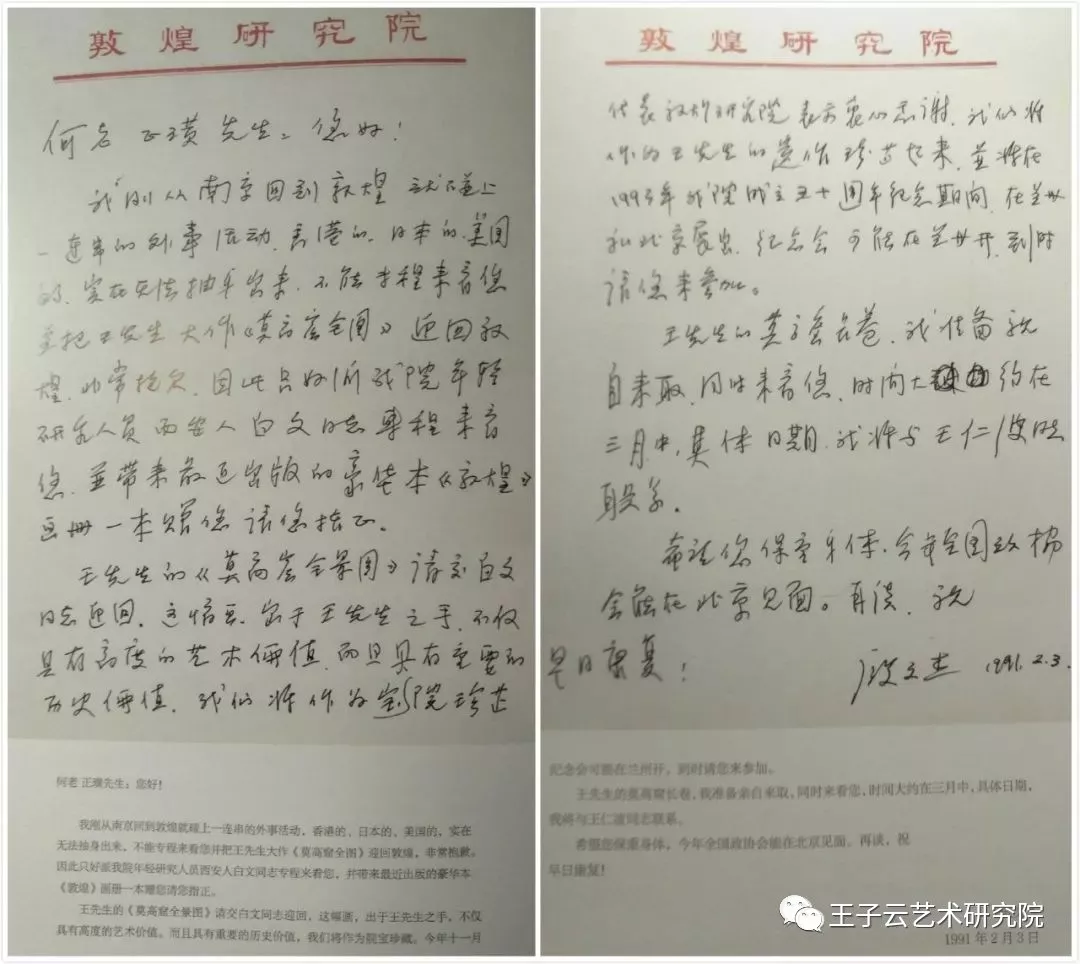 敦煌研究院
何老 正璜先生：您好！
我刚从南京回到敦煌就碰上
一连串的外事活动，香港的、日本的、美国
的，实在无法抽身出来，不能专程来看您
并把王先生大作《莫高窟全图》迎回敦
煌，非常抱欠，因此只好派我院年轻
研究人员西安人白文同志专程来看
您，並带来最近出版的豪华本《敦煌》
画册一本赠您请您指正。
王先生的《莫高窟全景图》请交白文
同志迎回，这幅画，出于王先生之手，不仅
具有高度的艺术価值，而且具有重要的
历史価值，我们将作为
敦煌研究院
代表敦煌研究院表示衷心感谢，我们将
王先生的遗作 起来，並将在
我院成立五十周年纪念期间，在兰州
和北京展出，纪念会可能在兰州开，到时
请您来参加。
王先生的莫高窟长卷，我准备亲
自来取，同时来看您，时间大约在
三月中，具体日期，我将与王仁波同志
联系。
希望您保重身体，今年全国政协
会能在北京见面。再谈，祝
早日康复！
段文杰 1991.2.3.
何老 正璜先生：您好！
我刚从南京回到敦煌就碰上一连串的外事活动，香港的、日本的、美国的，实在
无法抽身出来，不能专程来看您并把王先生大作《莫高窟全图》迎回敦煌，非常抱歉。
因此只好派我院年轻研究人员西安人白文同志专程来看您，并带来最近出版的豪华本
《敦煌》画册一本赠您请您指正。
王先生的《莫高窟全景图》请交白文同志迎回，这幅画，出于王先生之手，不仅
具有高度的艺术价值。而且具有重要的历史价值，我们将作为院宝珍藏。今年十一月
纪念会可能在兰州开，到时请您来参加。
王先生的莫高窟长卷，我准备亲自来取，同时来看您，时间大约在三月中，具体日期，
我将与王仁波同志联系。
希望您保重身体，今年全国政协会能在北京见面。再谈，祝
早日康复！
1991年2月3日
王子云艺术研究院